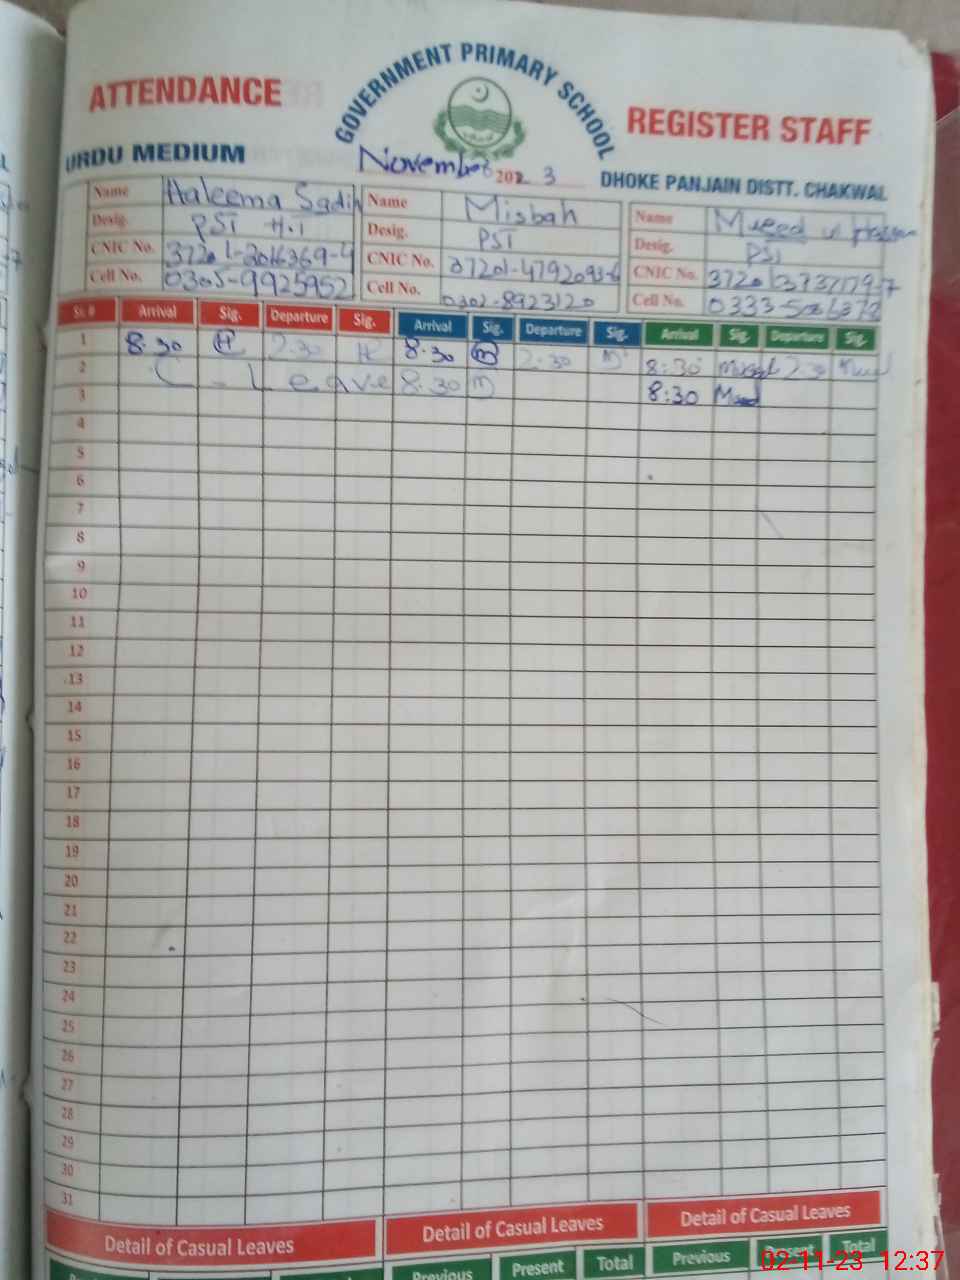 GOVERNMENT PRIMARY SCHOOL
ATTENDANCE
REGISTER STAFF
URDU MEDIUM
November 2023
DHOKE PANJAIN DISTT. CHAKWAL
Name Haleema Sadia Name Misbah Name Mueed ul Hassan
Desig. PST H.T Desig. PST Desig. PST
CNIC No. CNIC No. 37201-4792093-6 CNIC No.
Cell No. 0305-9925952 Cell No. 0302-8923120 Cell No.
Sr. # Arrival Sig. Departure Sig. Arrival Sig. Departure Sig. Arrival Sig. Departure Sig.
1 8:30 H 2:30 H 8:30 m 2:30 m 8:30 Mueed 2:30 Mueed
2 C-Leave 8:30 m 8:30 Mueed
3
4
5
6
7
8
9
10
11
12
13
14
15
16
17
18
19
20
21
22
23
24
25
26
27
28
29
30
31
Detail of Casual Leaves Detail of Casual Leaves Detail of Casual Leaves
Previous Present Total Previous Present Total
02-11-23 12:37